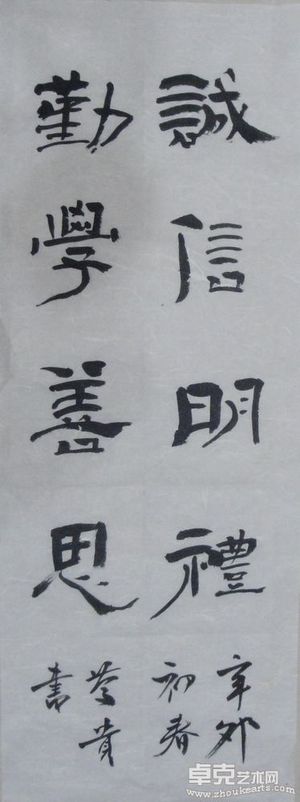 誠信明禮
勤學善思
辛卯
初春
貴
書
卓克艺术网
www.zhoukearts.com